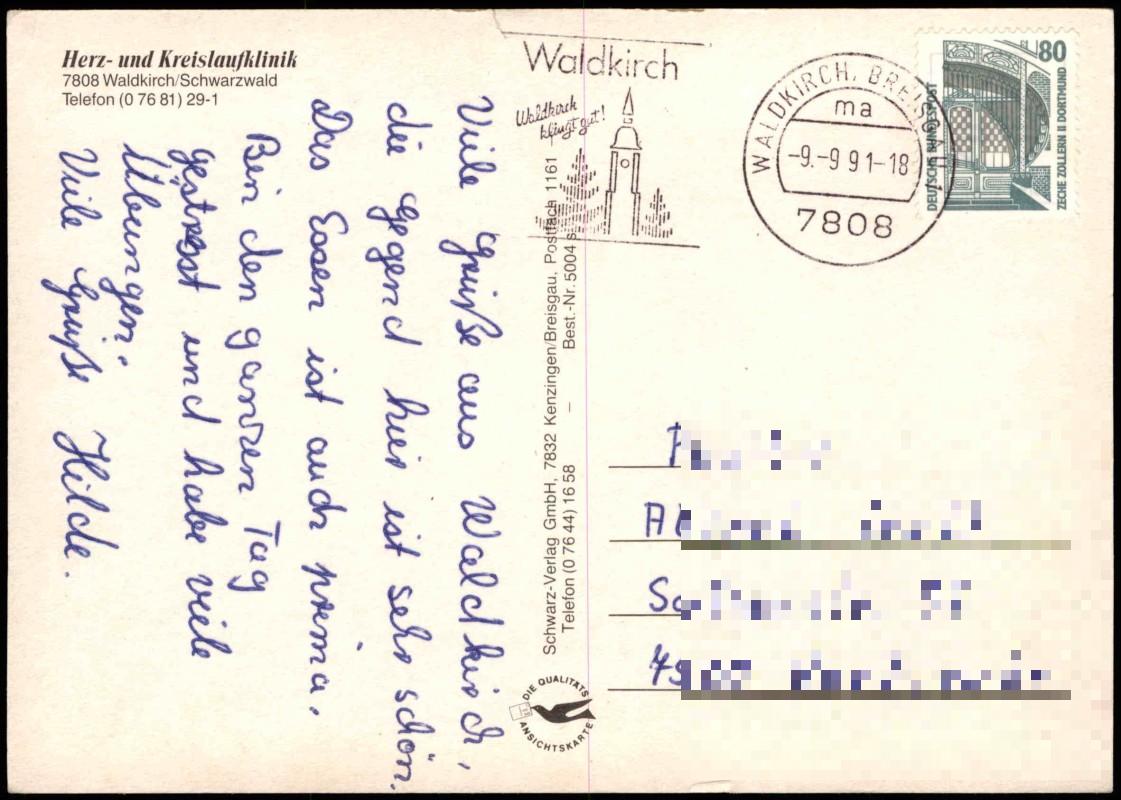 Herz- und Kreislaufklinik
7808 Waldkirch/Schwarzwald
Telefon (0 76 81) 29-1
Viele grüße aus Waldkirch,
die gegend hier ist sehr schön.
Das Essen ist auch prima.
Bin den ganzen Tag
gestresst und habe viele
Übungen.
Viele Grüße Hilde.
Schwarz-Verlag GmbH, 7832 Kenzingen/Breisgau, Postfach 1161
Telefon (0 76 44) 16 58 – Best.-Nr. 5004
DIE QUALITÄTS
ANSICHTSKARTE
Waldkirch
Waldkirch
klingt gut!
WALDKIRCH, BREISGAU
ma
-9.-9 91-18
7808
80
DEUTSCHE BUNDESPOST
ZECHE ZOLLERN II DORTMUND